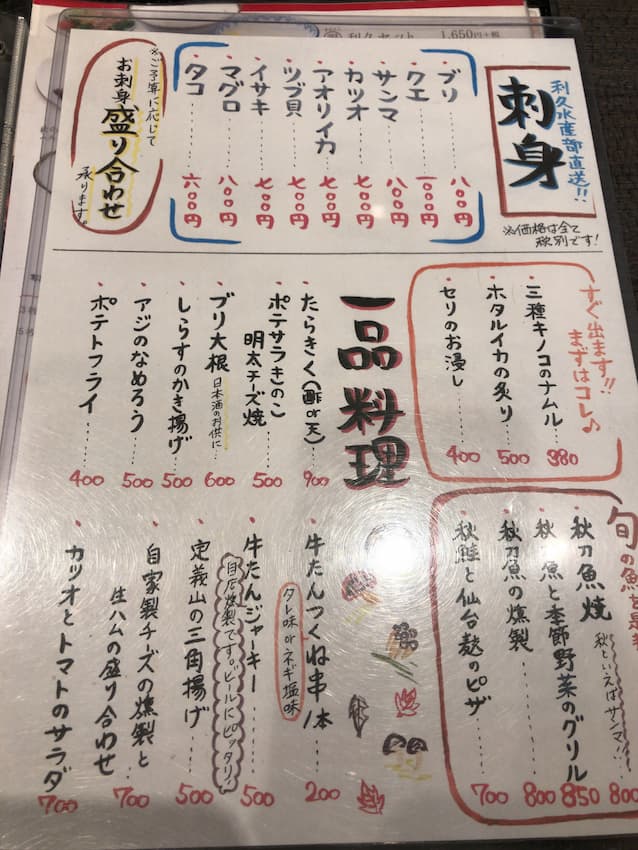 利久セット 1,650円+税
利久水産部直送!!
刺身
※価格は全て
税別です!
・ブリ……八〇〇円
・クエ……一、〇〇〇円
・サンマ……八〇〇円
・カツオ……七〇〇円
・アオリイカ……七〇〇円
・ツブ貝……七〇〇円
・イサキ……七〇〇円
・マグロ……八〇〇円
・タコ……六〇〇円
※ご予算に応じて
お刺身盛り合わせ
承ります。
すぐ出ます!!
まずはコレ♪
・三種キノコのナムル…380
・ホタルイカの炙り…500
・セリのお浸し……400
一品料理
・たらきく(酢or天)…900
・ポテサラきのこ
明太チーズ焼…500
・ブリ大根 日本酒のお供に…600
・しらすのかき揚げ…500
・アジのなめろう……500
・ポテトフライ……400
旬の魚を
秋刀魚焼 秋といえばサンマ!!…800
・秋刀魚と季節野菜のグリル 850
・秋刀魚の燻製……800
・秋鮭と仙台麩のピザ…700
・牛たんつくね串/本…200
タレ味orネギ塩味
・牛たんジャーキー……500
自店燻製です。ビールにピッタリ!
・定義山の三角揚げ……500
・自家製チーズの燻製と
生ハムの盛り合わせ…700
・カツオとトマトのサラダ 700